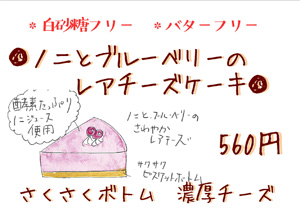 *白砂糖フリー *バターフリー
ノニとブルーベリーの
レアチーズケーキ
酵素たっぷり
ノニジュース
使用
ノニとブルーベリーの
さわやか
レアチーズ
560円
サクサク
ビスケットボトム
さくさくボトム 濃厚チーズ